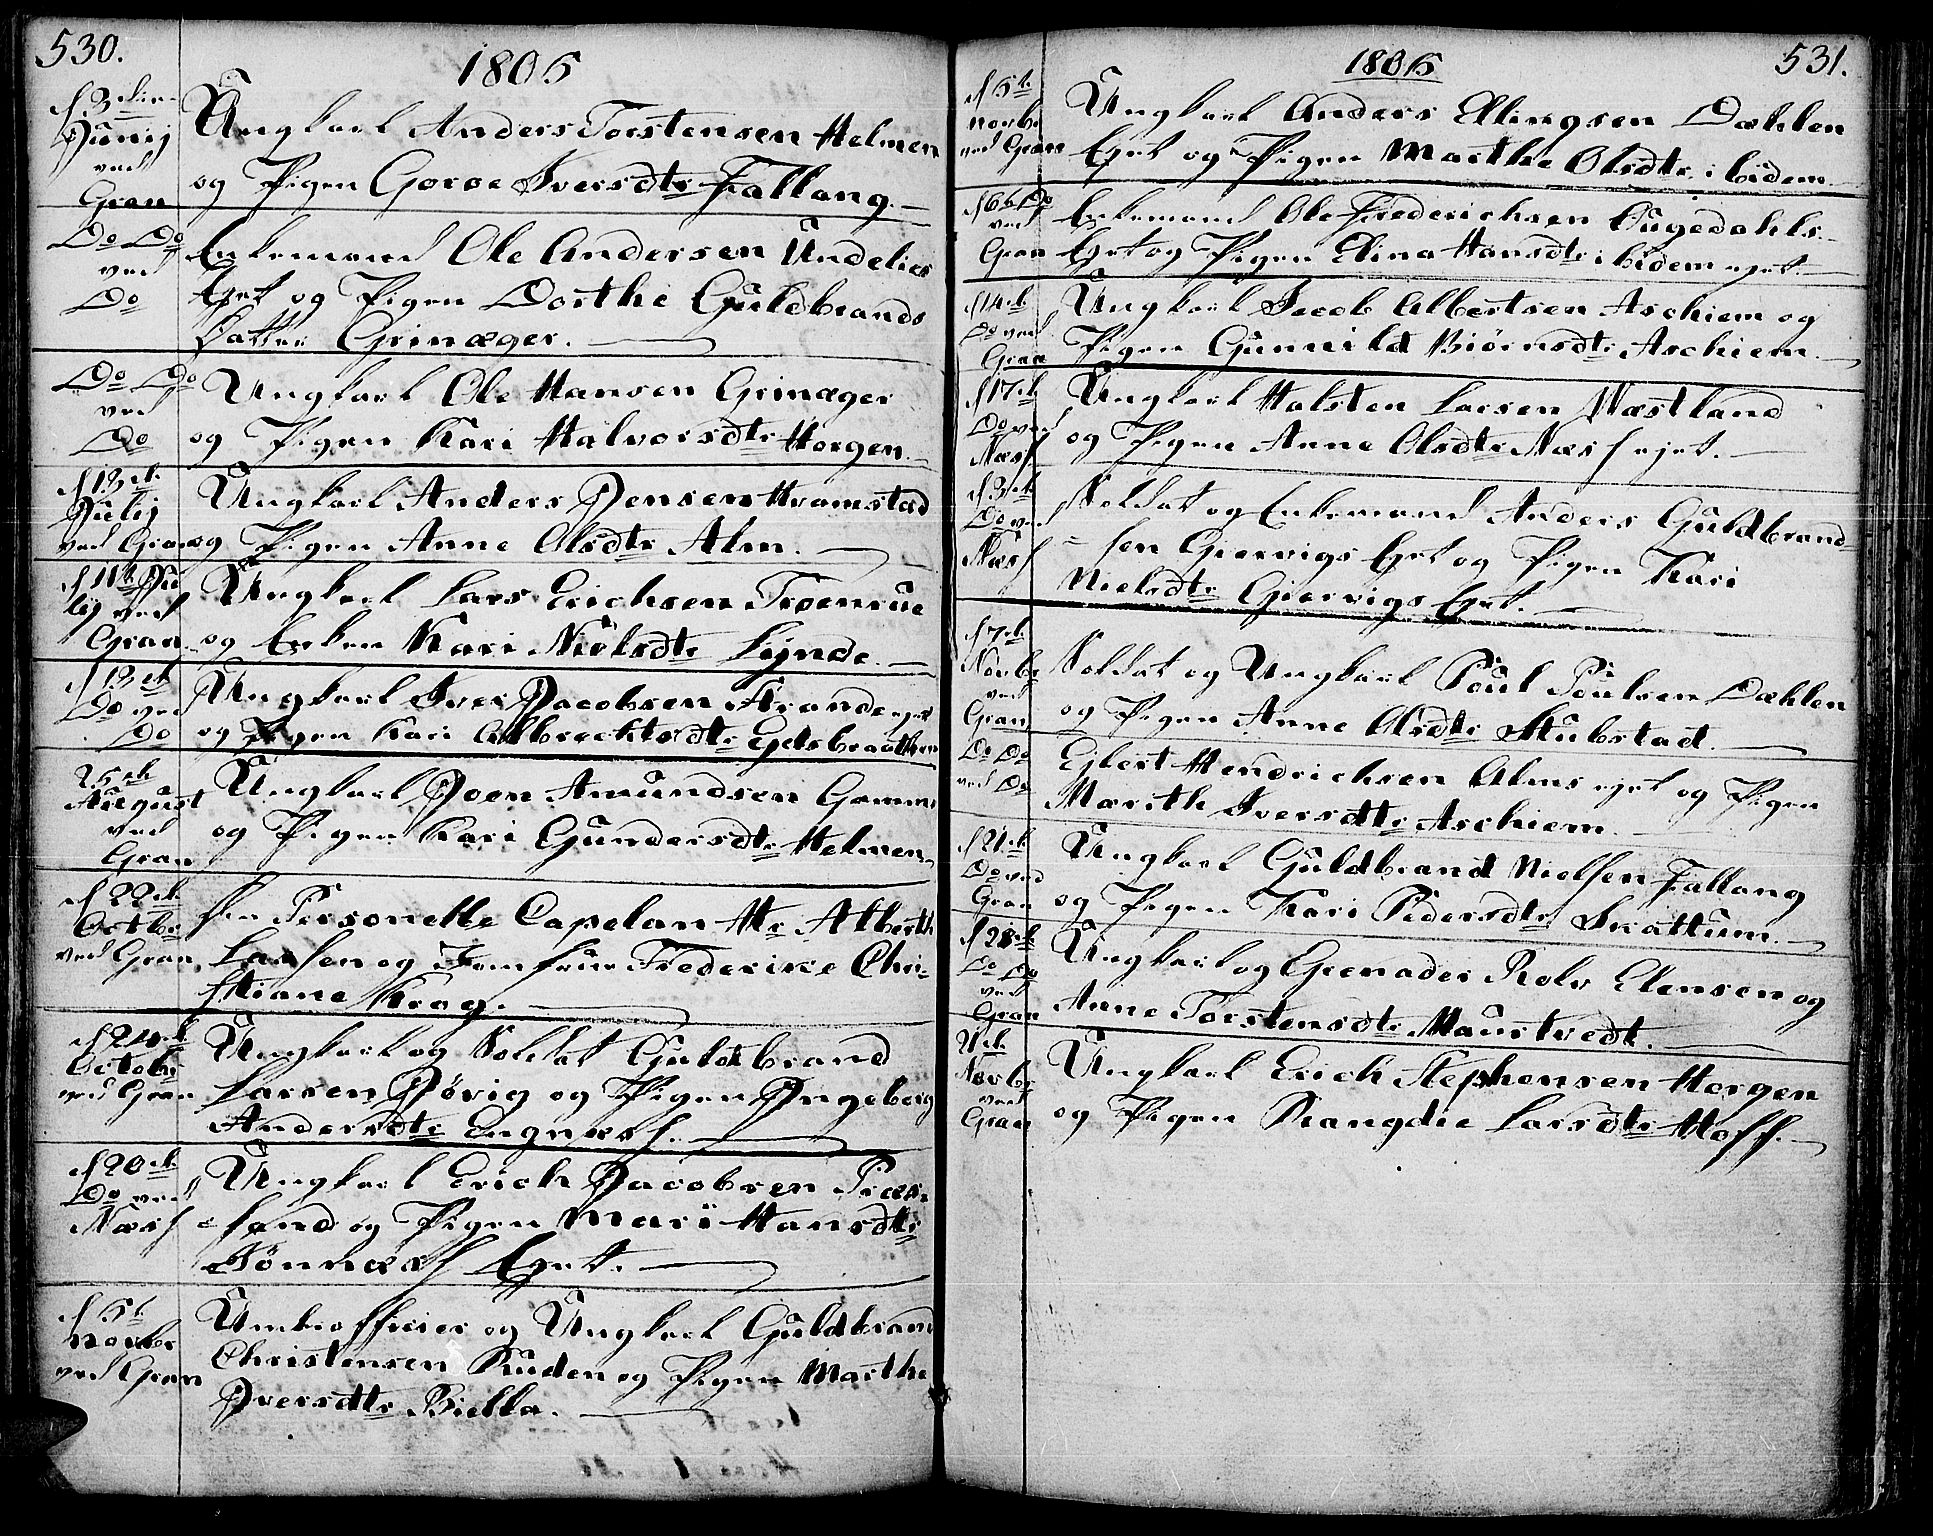 530.
1805
d 3die
Junij
ved
Gran
Ungkarl Anders Torstensen Helmen
og Pigen Goroe Iversdtr Fallang.
Do Do
ved
Do
Enkemand Ole Andersen Undelies
Eyet og Pigen Dorthe Guldbrands
Datter Grinager.
Do Do
ved
Do
Ungkarl Ole Hansen Grinæger
og Pigen Kari Halvorsdtr Horgen.
d 13de
Julij
ved Gran
Ungkarl Anders Jensen Hramstad
og Pigen Anne Olsdtr Alm.
d 11t Ju
lij ved
Gran
Ungkarl Lars Erichsen Troenrue
og Enken Kari Nielsdtr Lynde.
d 13de
Do ved
Do
Ungkarl Iver Jacobsen Strande eyet
og Pigen Kari Albrechtsdtr Egdsbraathen
25de
August
ved
Gran
Ungkarl Joen Amundsen Gamme
og Pigen Kari Gundersdtr Helmen
d 22de
Octbr
ved Gran
Den Personelle Capelan Hr Alberth
Lassen og Jomfrue Frederikke Chri-
stiane Krag.
d 24de
Octobr
ved Gran
Ungkarl og Soldat Guldbrand
Larsen Jøvig og Pigen Ingeborg
Andersdtr Engnæss.
d 20de
Do ved
Næss
Ungkarl Erich Jacobsen Præste-
sand og Pigen Mari Hansdtr
Sønnæss Eyet.
d 5t
Novbr
ved Gran
Underofficier og Ungkarl Guldbrand
Christensen Ruden og Pigen Marthe
Iversdtr Biella.
1805
531.
d 5t
Novbr
ved Gran
Ungkarl Anders Elingsen Dæhlen
Eyet og Pigen Marthe Olsdtr ibidem
d 6t Do
ved
Gran
Enkemand Ole Frederichsen Bugedahls-
Eyet og Pigen Elina Hansdtr ibidem eyet.
d 14de
Do ved
Gran
Ungkarl Jacob Albertsen Aschiem og
Pigen Gunnild Biörnsdtr Aschiem.
d 17de
Do ved
Næss
Ungkarl Halsten Larsen Wæstland
og Pigen Anne Olsdtr Næss eyet.
d 3de
Do ved
Næss
Soldat og Enkemand Anders Guldbrand-
sen Giervigs Eyet og Pigen Kari
Nielsdtr Giervigs Eyet.
d 7de
Novbr
ved
Gran
Soldat og Ungkarl Poul Poulsen Dæhlen
og Pigen Anne Olsdtr Stubstad.
Do Do
ved Do
Ejlert Hendrichsen Alms eyet og Pigen
Marith Iversdtr Aschiem.
d 21de
Do ved
Gran
Ungkarl Guldbrand Nielsen Fallang
og Pigen Kari Pedersdtr Skattum.
d 28de
Do Do
ved
Gran
Ungkarl og Grenader Rolv Elensen og
Anne Torstensdtr Maustvedt.
Novbr
ved
Gran
Ungkarl Erich Stephensen Horgen
og Pigen Rangdie Larsdtr Hoff.